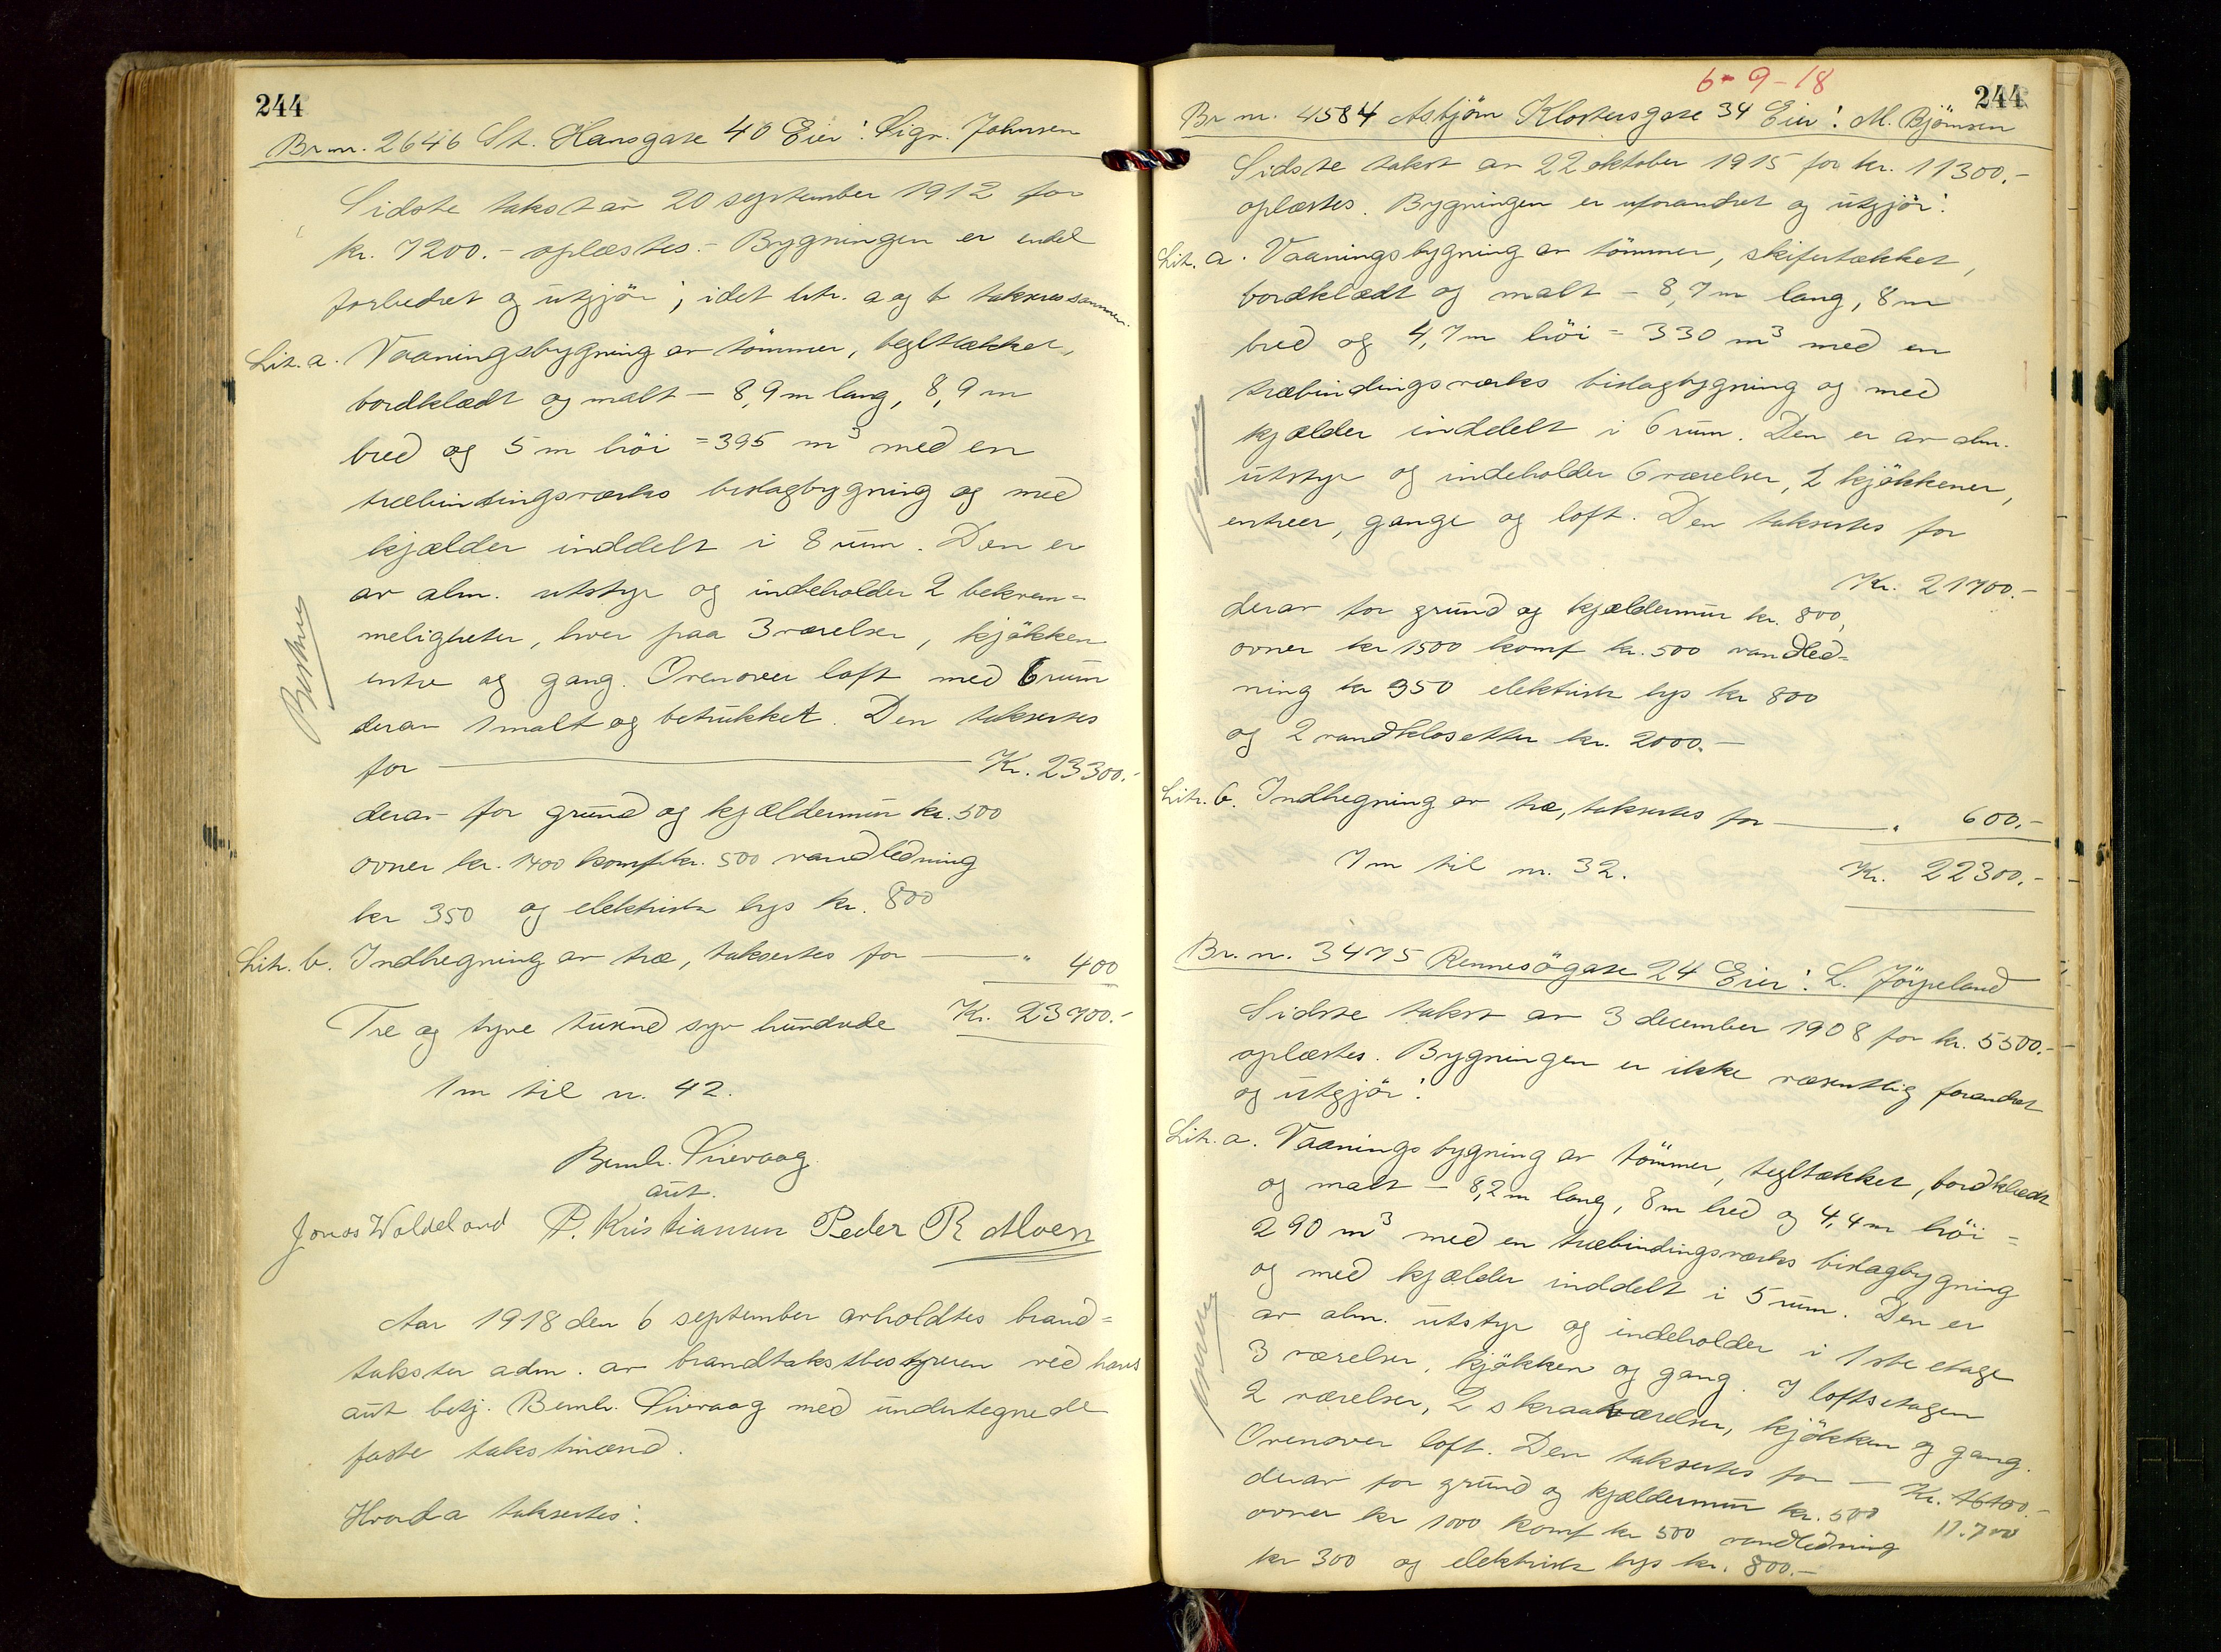 244
Br nr. 2646 St. Hansgate 40 Eier: Sigv. Johnsen
Sidste takst av 20 september 1912 for
kr. 7200.- oplæstes.- Bygningen er endel
forbedret og utgjør; idet litr. a og b takseres sammen.
Lit. a. Vaaningsbygning av tömmer, tegltækket,
bordklædt og malt - 8,9 m lang, 8,9 m
bred og 5 m höi = 395 m3 med en
træbindingsverks bislagbygning og med
kjælder inddelt i 8 rum. Den er
av alm. utstyr og indeholder 2 bekvem=
meligheter, hver paa 3 værelser, kjökken
entre og gang. Ovenover loft med 6 rum
derav 1 malt og betrukket. Den taksertes
for Kr. 23300.-
derav for grund og kjældermur kr. 500
ovner kr. 1400 komf kr. 500 vandledning
kr 350 og elektrisk lys kr. 800
Litr. b. Indhegning av træ, taksertes for " 400
Tre og tyve tusend syv hundrede Kr. 23700.-
1 m til nr. 42.
Bernh. Sirevaag
aut.
Jonas Woldeland P. Kristiansen Peder R Moen
Aar 1918 den 6 september avholdtes brand=
takster adm. av brandtakstbestyreren ved hans
aut betj. Bernh. Sirevaag med undertegnede
faste takstmænd.
Hvorda taksertes:
6-9-18
244
Br nr. 4584 Asbjörn Klostersgate 34 Eier: M. Björnsen
Sidste takst av 22 oktober 1915 for kr. 11300.-
oplæstes. Bygningen er uforandret og utgjör:
Lit. a. Vaaningsbygning av tömmer, skifertækket,
bordklædt og malt - 8,7 m lang, 8 m
bred og 4,7 m höi = 330 m3 med en
træbindingsverks bislagbygning og med
kjælder inddelt i 6 rum. Den er av alm.
utstyr og indeholder 6 værelser, 2 kjökkener,
entreer, gange og loft. Den taksertes for
Kr. 21700.-
derav for grund og kjældermur kr. 800,
ovner kr 1500 komf kr. 500 vandled=
ning kr 350 elektrisk lys kr 800
og 2 vandklosetter kr. 2000.-
Litr. b. Indhegning av træ, taksertes for " 600.-
7 m til nr. 32. Kr. 22300.-
Br. nr. 3475 Rennesögate 24 Eier: L. Jörpeland
Sidste takst av 3 december 1908 for kr. 5500.-
oplæstes. Bygningen er ikke væsentlig forandret
og utgjör:
Litr. a. Vaaningsbygning av tömmer, tegltækket, bordklædt
og malt - 8,2 m lang, 8 m bred og 4,4 m höi =
290 m3 med en træbindingsverks bislagbygning
og med kjælder inddelt i 5 rum. Den er
av alm. utstyr og indeholder i 1ste etage
3 værelser, kjökken og gang. I loftsetagen
2 værelser, 2 skraaværelser, kjökken og gang.
Ovenover loft. Den taksertes for - Kr. 16100.-
17.700
derav for grund og kjældermur kr. 500
ovner kr 1000 komf kr 500 vandledning
kr 300 og elektrisk lys kr. 800.-